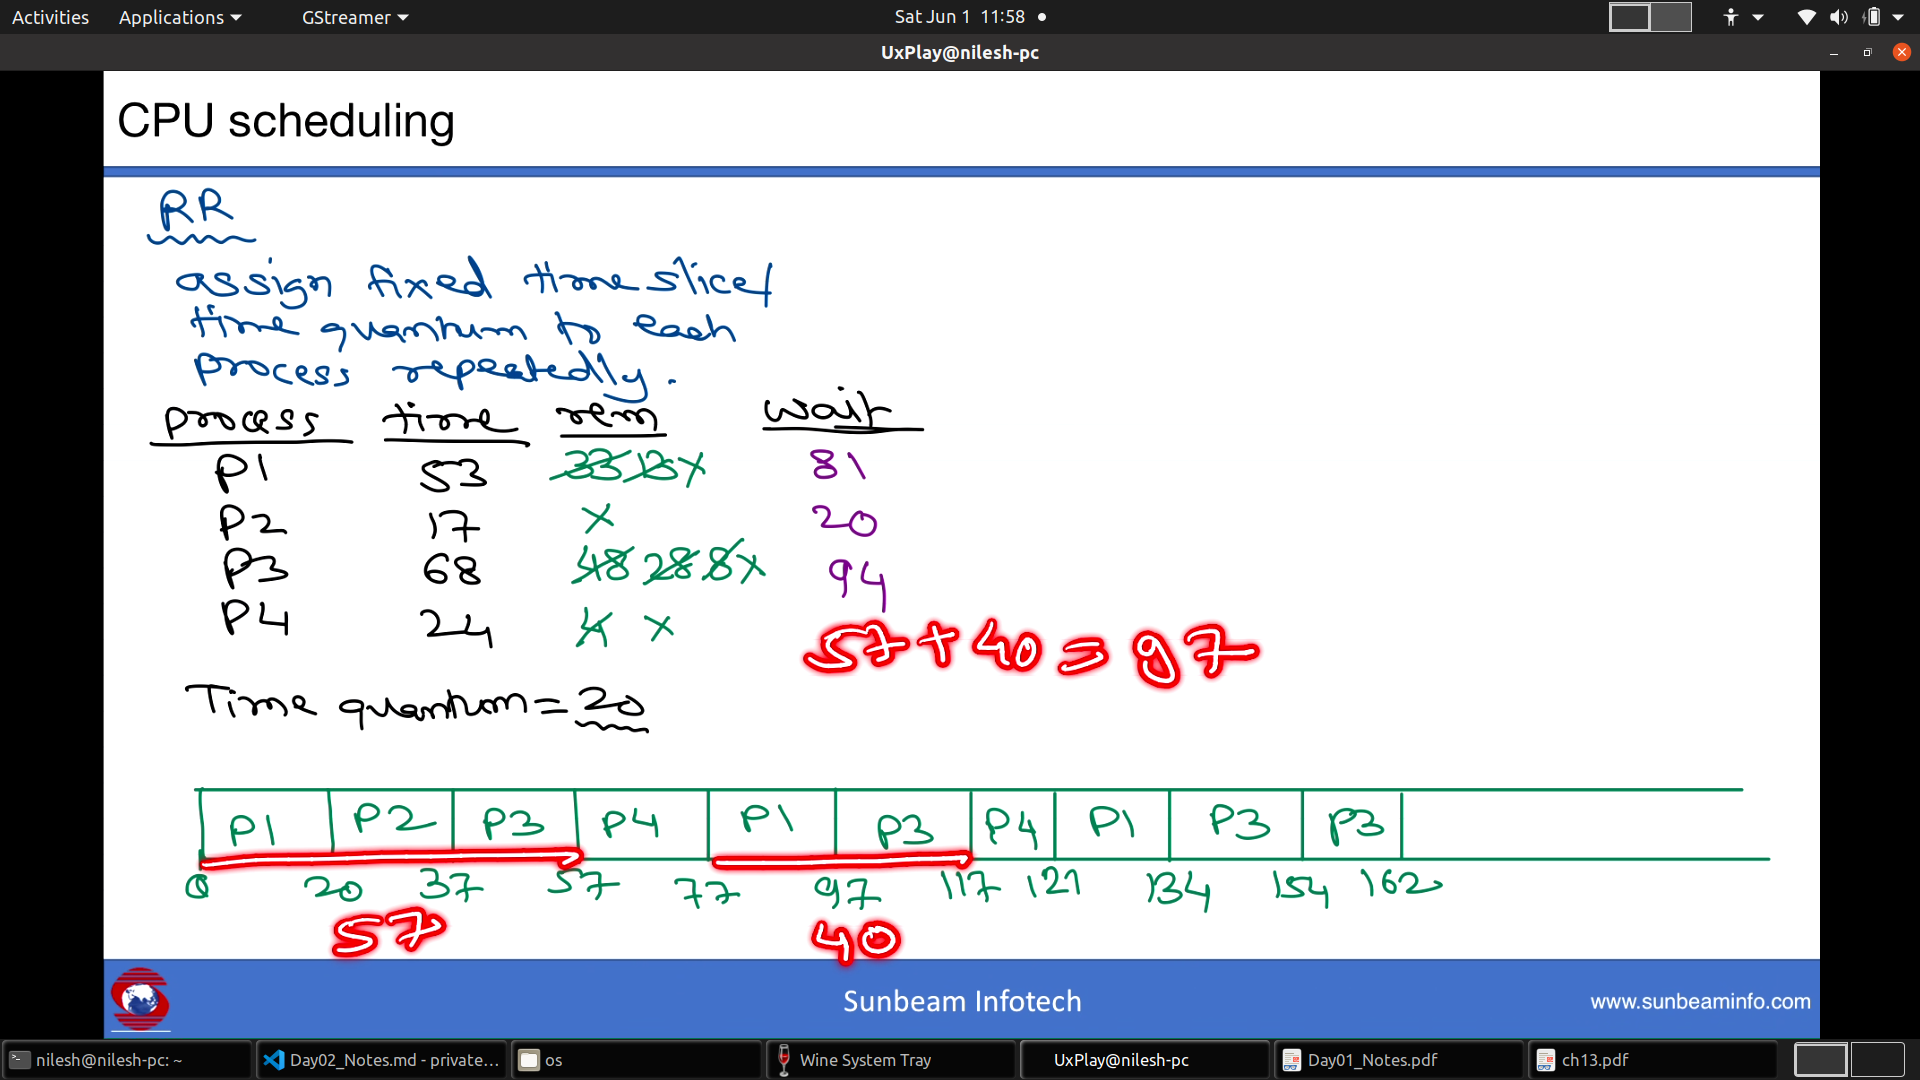 Activities Applications GStreamer Sat Jun 1 11:58
UxPlay@nilesh-pc
CPU scheduling
RR
assign fixed time slice/
time quantum to each
process repeatedly.
process time rem wait
P1 53 33 13 x 81
P2 17 x 20
P3 68 48 28 8 x 94
P4 24 4 x 57+40=97
Time quantum = 20
P1 P2 P3 P4 P1 P3 P4 P1 P3 P3
0 20 37 57 77 97 117 121 134 154 162
57 40
Sunbeam Infotech www.sunbeaminfo.com
nilesh@nilesh-pc: ~ Day02_Notes.md - private... os Wine System Tray UxPlay@nilesh-pc Day01_Notes.pdf ch13.pdf